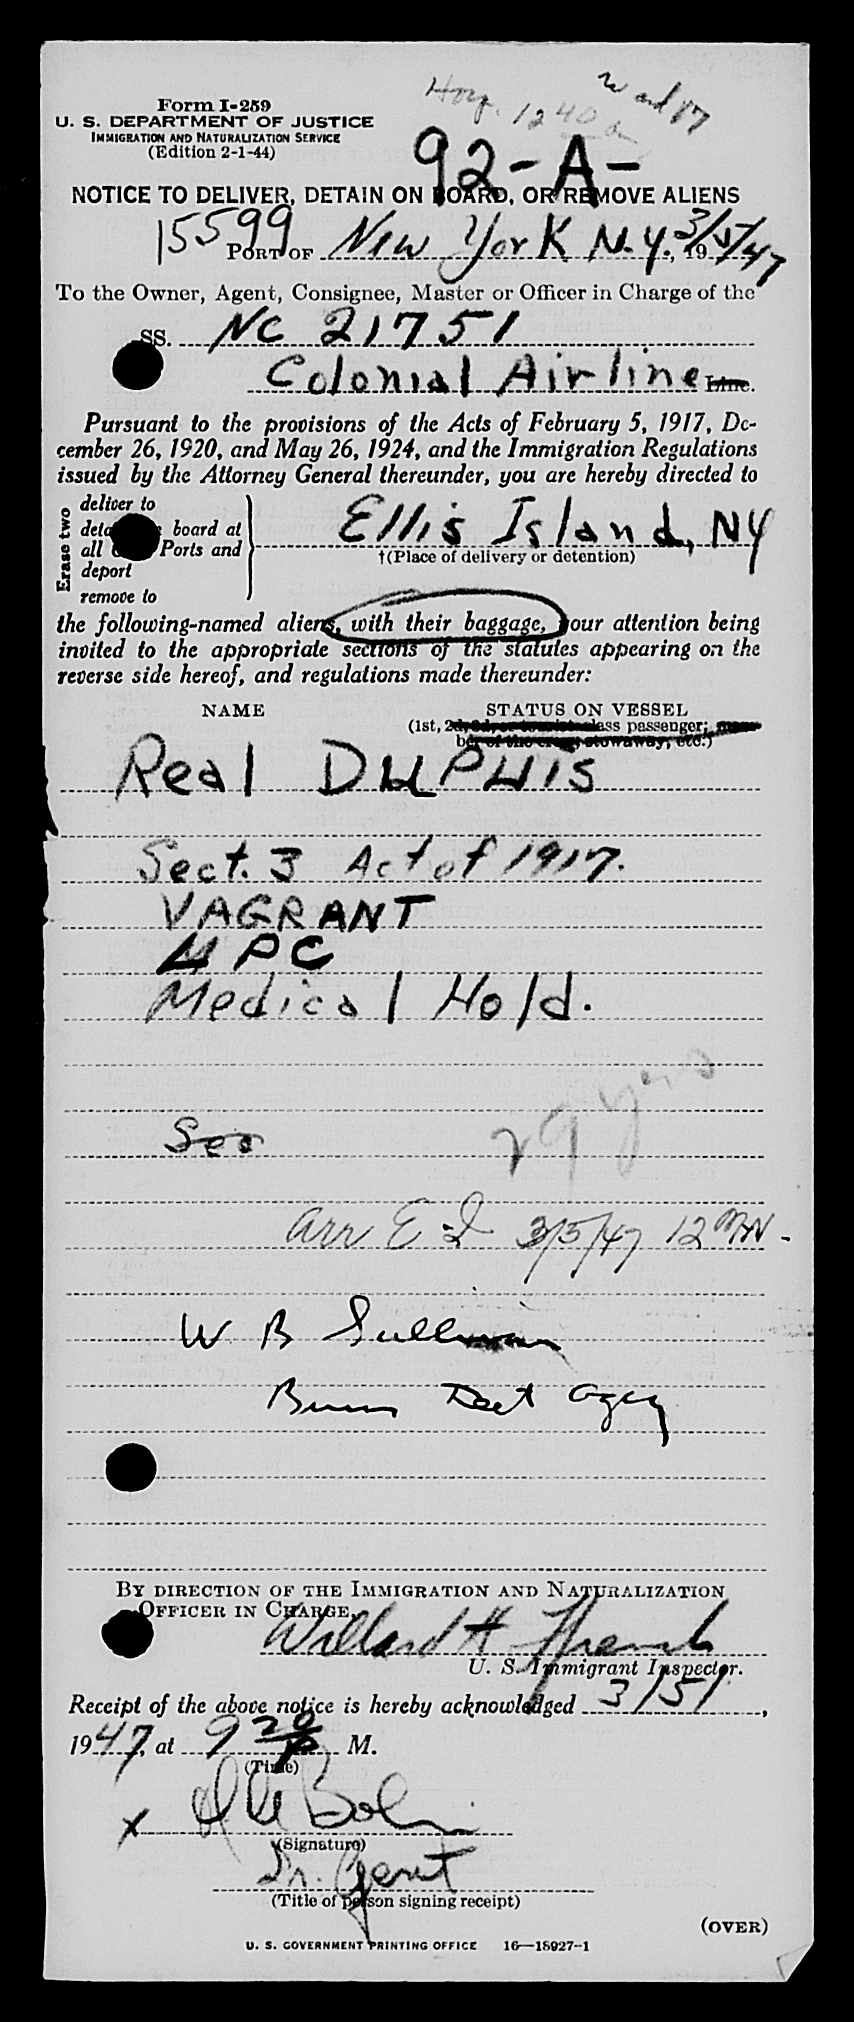 Hosp. 1240 a Ward 17
Form I-259
U. S. DEPARTMENT OF JUSTICE
IMMIGRATION AND NATURALIZATION SERVICE
(Edition 2-1-44)
92-A-
NOTICE TO DELIVER, DETAIN ON BOARD, OR REMOVE ALIENS
15599
PORT OF New York N.Y. 3/5/47, 19
To the Owner, Agent, Consignee, Master or Officer in Charge of the
SS. NC 21751
Colonial Airline Line.
Pursuant to the provisions of the Acts of February 5, 1917, De-
cember 26, 1920, and May 26, 1924, and the Immigration Regulations
issued by the Attorney General thereunder, you are hereby directed to
Erase two
deliver to
board at
all Ports and
deport
remove to
Ellis Island, NY
†(Place of delivery or detention)
the following-named aliens, with their baggage, your attention being
invited to the appropriate sections of the statutes appearing on the
reverse side hereof, and regulations made thereunder:
NAME STATUS ON VESSEL
(1st, 2d, 3d, or tourist class passenger; mem-
ber of the crew, stowaway, etc.)
Real DUPUIS
Sect. 3 Act of 1917.
VAGRANT
LPC
Medical Hold.
29 years
See
arr E I 3/5/47 12 MN -
W B Sullivan
Burns Det Agcy
BY DIRECTION OF THE IMMIGRATION AND NATURALIZATION
OFFICER IN CHARGE,
Willard H
U. S. Immigrant Inspector.
Receipt of the above notice is hereby acknowledged 3/5/,
1947, at 9 20 P M.
(Time)
x
(Signature)
Tr. Agent
(Title of person signing receipt)
(OVER)
U. S. GOVERNMENT PRINTING OFFICE 16—18927-1